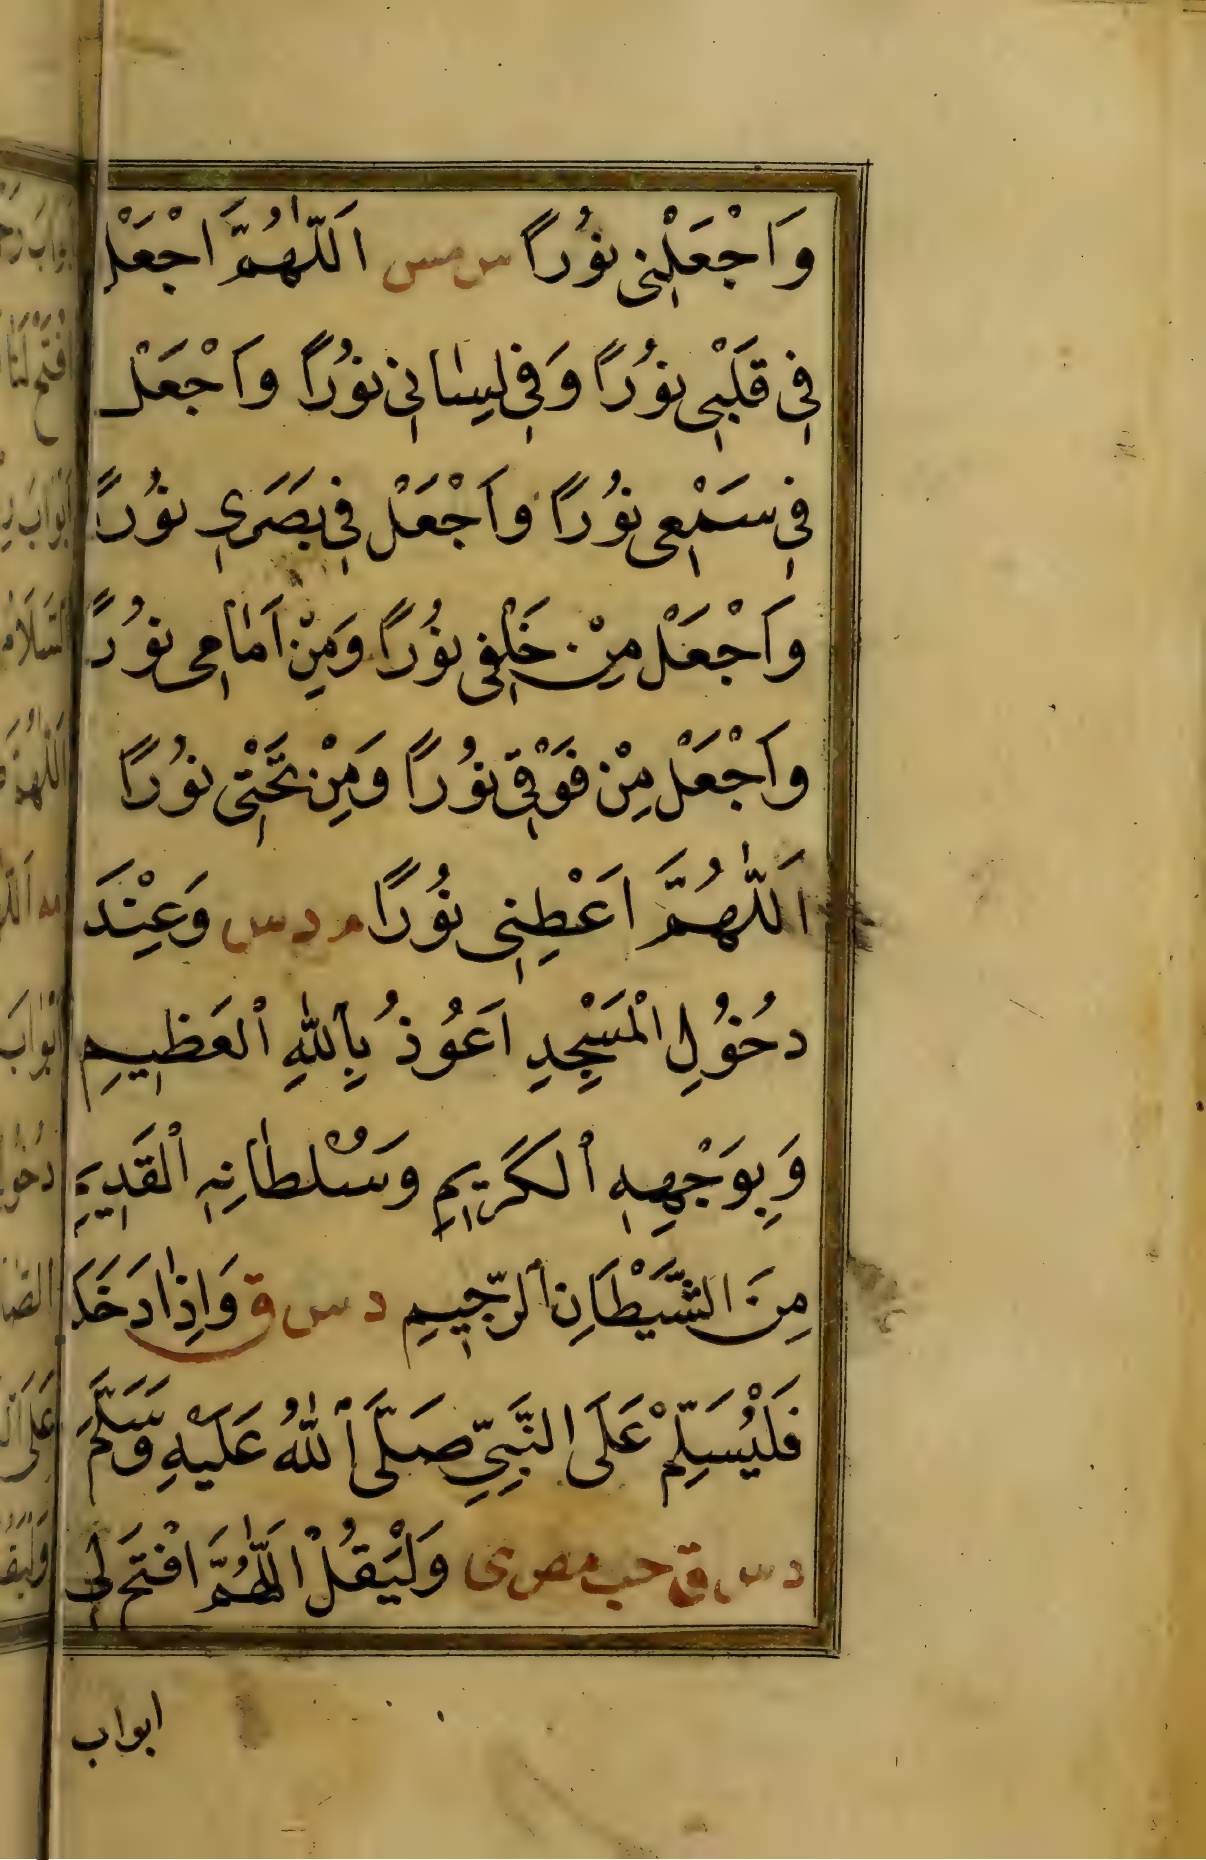 وَاَجْعَلْنِی نُوْرًا س مس اَللّٰهُمَّ اجْعَلْ
فِي قَلْبِي نُوْرًا وَفِي لِسَانِي نُوْرًا وَاَجْعَلْ
فِي سَمْعِي نُوْرًا وَاَجْعَلْ فِي بَصَرِي نُوْرًا
وَاَجْعَلْ مِنْ خَلْفِي نُوْرًا وَمِنْ اَمَامِي نُوْرًا
وَاَجْعَلْ مِنْ فَوْقِي نُوْرًا وَمِنْ تَحْتِي نُوْرًا
اَللّٰهُمَّ اَعْطِنِي نُوْرًا م د س وَعِنْدَ
دُخُوْلِ الْمَسْجِدِ اَعُوْذُ بِاَللّٰهِ اْلعَظِيمِ
وَبِوَجْهِهِ اْلكَرِيمِ وَسُلْطَانِهِ اْلقَدِيمِ
مِنَ الشَّيْطَانِ الرَّجِيمِ د س ق وَاِذَا دَخَلَ
فَلْيُسَلِّمْ عَلَى النَّبِيِّ صَلَّى اللّٰهُ عَلَيْهِ وَسَلَّمَ
د س ق حب مص ى وَلْيَقُلْ اَللّٰهُمَّ افْتَحْ لِي
ابواب